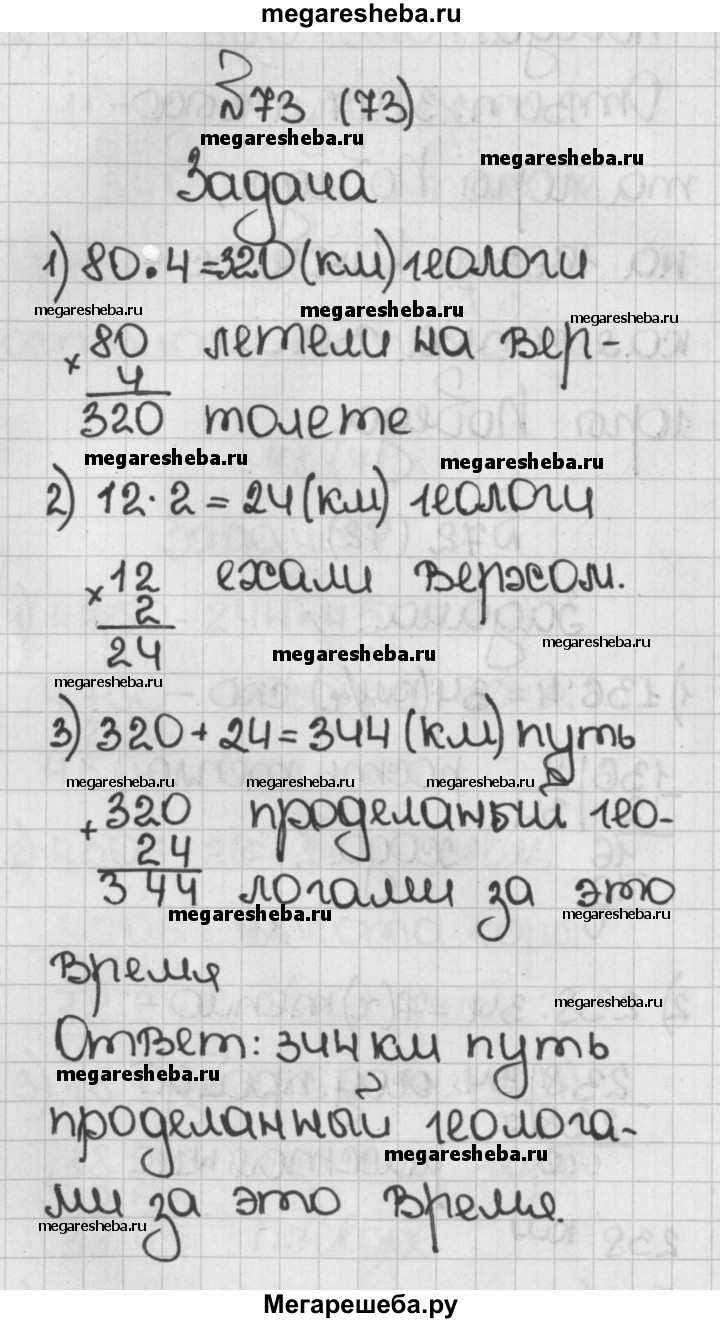 megaresheba.ru
№73 (73)
megaresheba.ru
megaresheba.ru
Задача
1) 80·4=320(км) геологи
megaresheba.ru megaresheba.ru megaresheba.ru
×80 летели на вер-
4
320 толете
megaresheba.ru megaresheba.ru
2) 12·2=24(км) геологи
×12 ехали верхом.
2
24
megaresheba.ru megaresheba.ru
megaresheba.ru
3) 320+24=344(км) путь
megaresheba.ru megaresheba.ru megaresheba.ru
+320 проделаный гео-
24
344 логами за это
megaresheba.ru megaresheba.ru
время
megaresheba.ru
Ответ: 344км путь
megaresheba.ru
проделанный геолога-
megaresheba.ru
ми за это время.
megaresheba.ru
Мегарешеба.ру